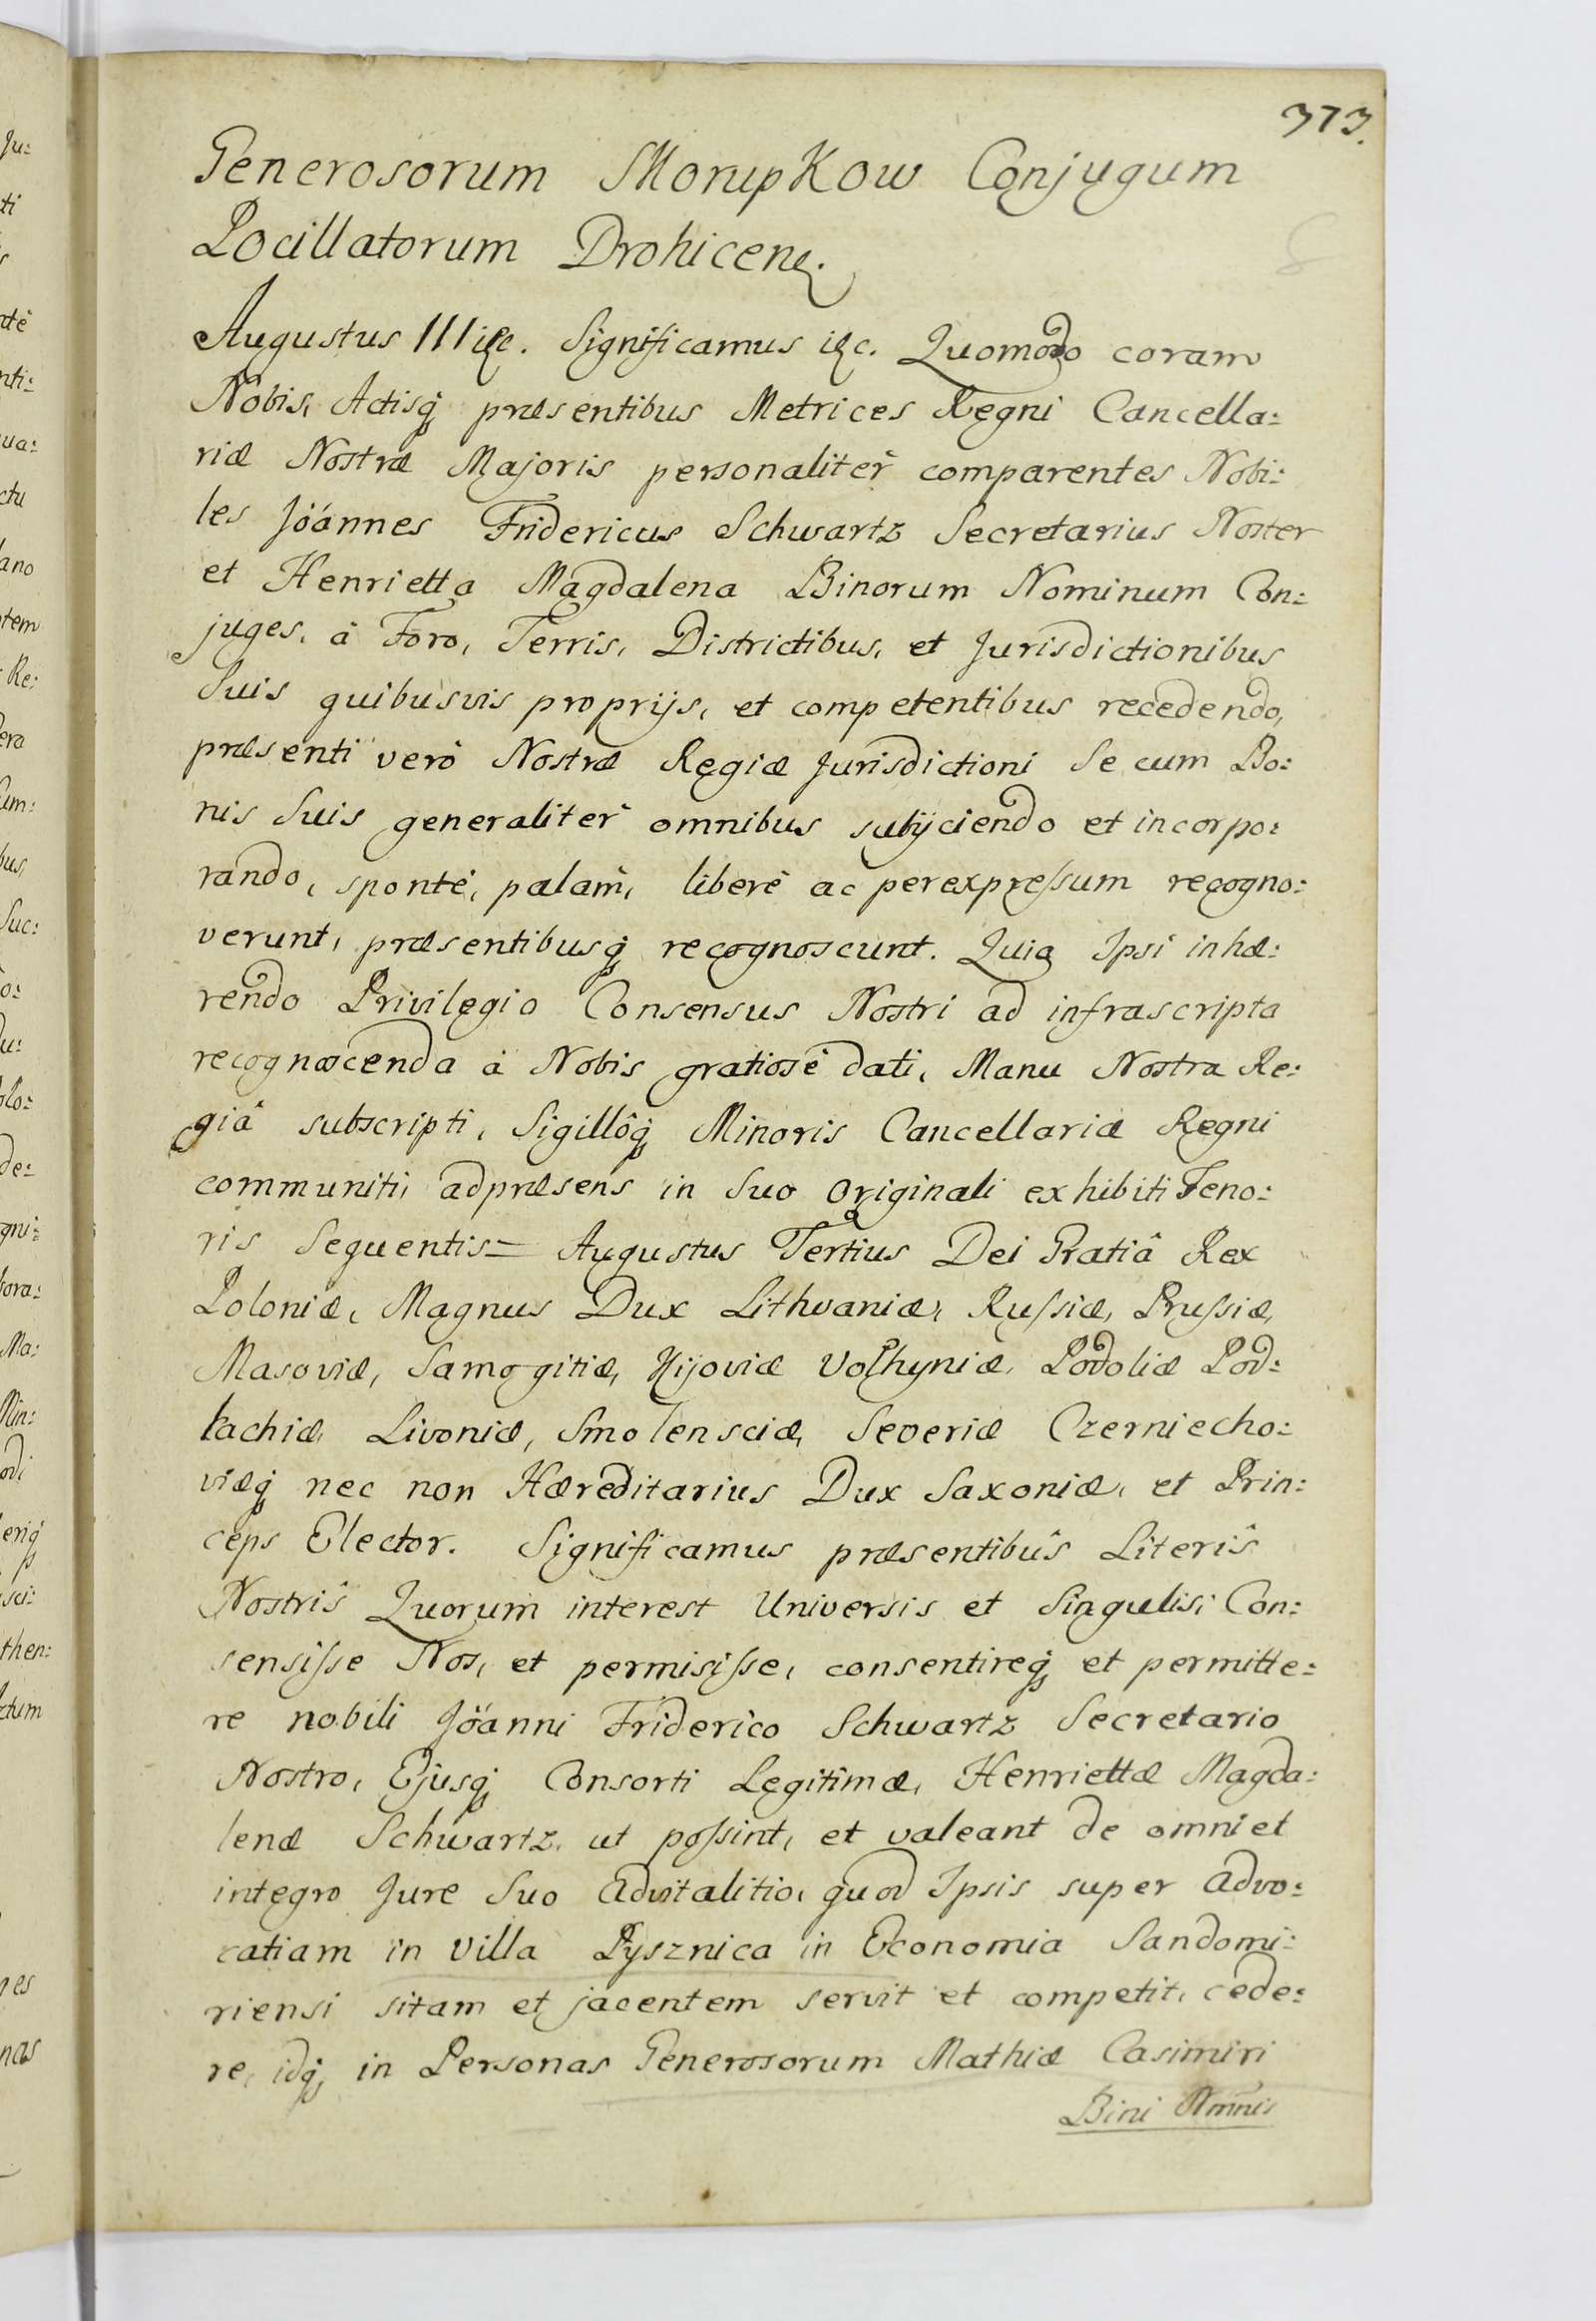 373.
Generosorum Morupkow Conjugum
Pocillatorum Drohicen.
Augustus III etc. Significamus etc. Quomodo coram
Nobis, Actisq præsentibus Metrices Regni Cancella:
riæ Nostræ Majoris personalitèr comparentes Nobi:
les Jöánnes Fridericus Schwartz Secretarius Noster
et Henrietta Magdalena Binorum Nominum Con:
juges, à Foro, Terris, Districtibus, et Jurisdictionibus
Suis quibusvis proprijs, et competentibus recedendo,
præsenti verò Nostræ Regiæ Jurisdictioni Se cum Bo:
nis Suis generalitèr omnibus subijciendo et incorpo:
rando, spontè, palàm, liberè ac per expreſsum recogno:
verunt, præsentibusq recognoscunt. Quia Ipsi inhæ:
rendo Privilegio Consensus Nostri ad infrascripta
recognoscenda à Nobis gratiosè dati, Manu Nostra Re:
giâ subscripti, Sigillôq Minoris Cancellariæ Regni
communiti, ad præsens in Suo Originali exhibiti Teno:
ris Sequentis= Augustus Tertius Dei Gratiâ Rex
Poloniæ, Magnus Dux Lithvaniæ, Ruſsiæ, Pruſsiæ,
Masoviæ, Samogitiæ, Kijoviæ Volhyniæ, Podoliæ Pod:
lachiæ, Livoniæ, Smolensciæ, Severiæ Czerniecho:
viæq nec non Hæreditarius Dux Saxoniæ, et Prin:
ceps Elector. Significamus præsentibûs Literîs
Nostrîs Quorum interest Universis et Singulis; Con:
sensiſse Nos, et permisiſse, consentireq et permitte:
re nobili Jöánni Friderico Schwartz Secretario
Nostro, Ejusq Consorti Legitimæ, Henriettæ Magda:
lenæ Schwartz, ut poſsint, et valeant de omni et
integro Jure Suo Advitalitio, quod Ipsis super Advo:
catiam in Villa Pysznica in Economia Sandomi:
riensi sitam et jacentem servit et competit, cede:
re, idq in Personas Generosorum Mathiæ Casimiri
Bini Nominis